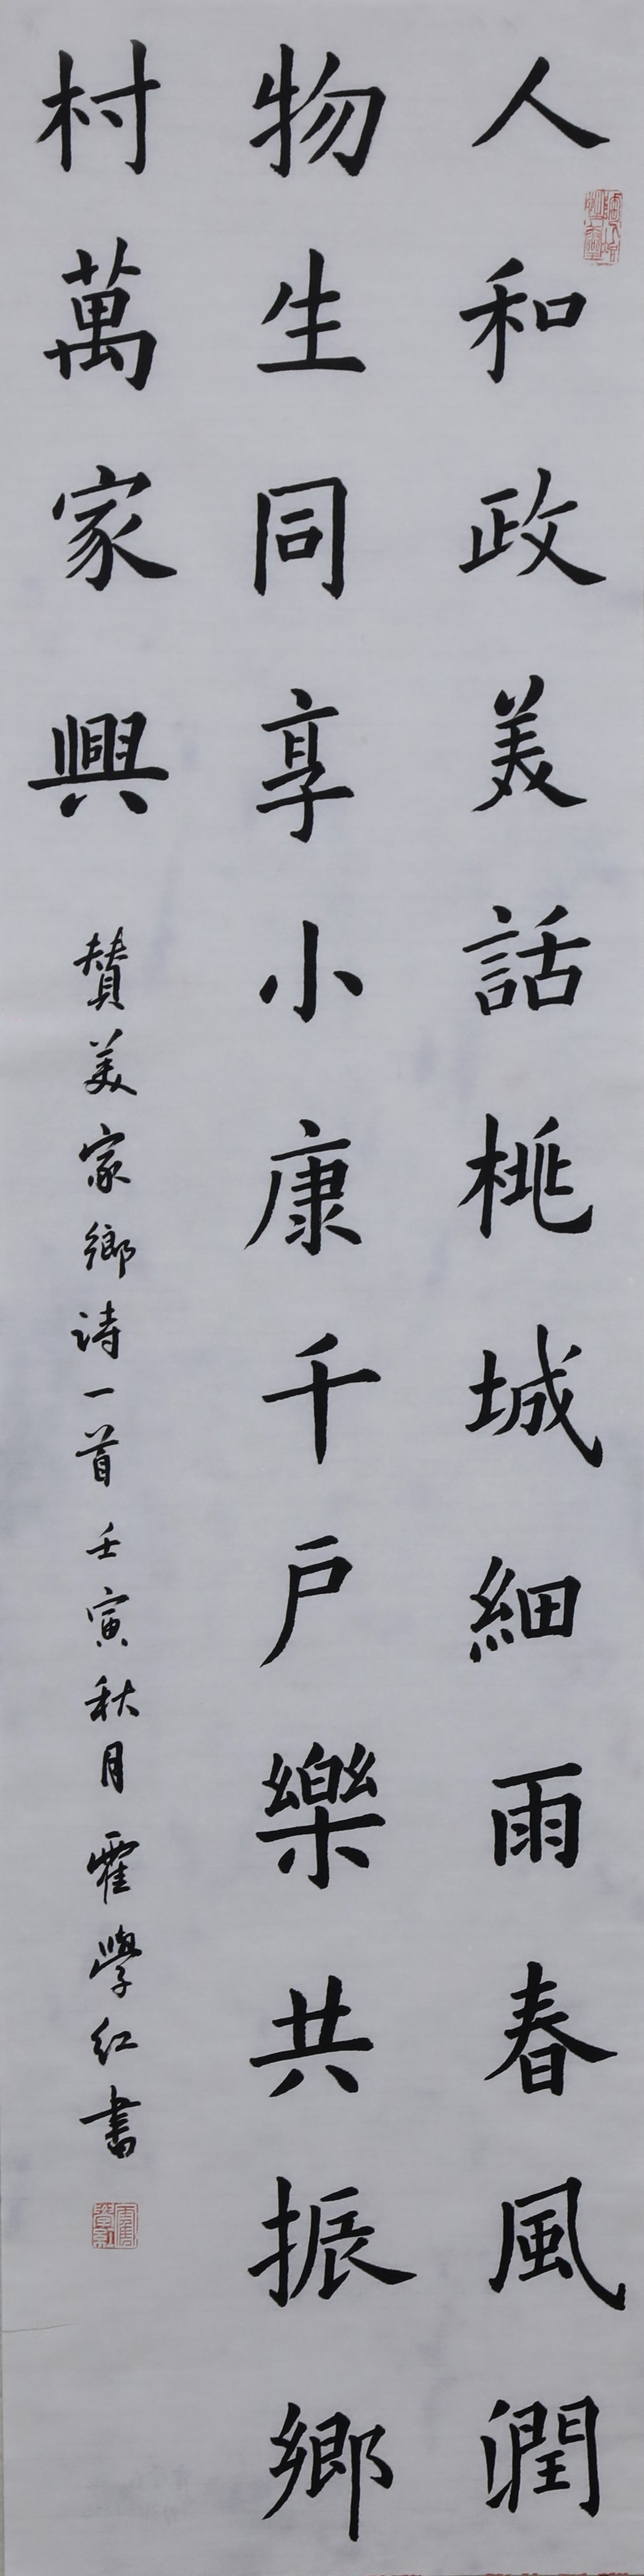 人和政美話桃城細雨春風潤
物生同享小康千戶樂共振鄉
村萬家興
贊美家鄉诗一首壬寅秋月霍學红書
霍學紅